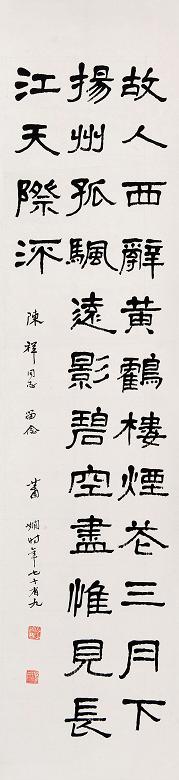 故人西辭黃鶴樓煙花三月下
揚州孤颿遠影碧空盡惟見長
江天際流
陳祥同志 留念 蕭嫻時年七十有九